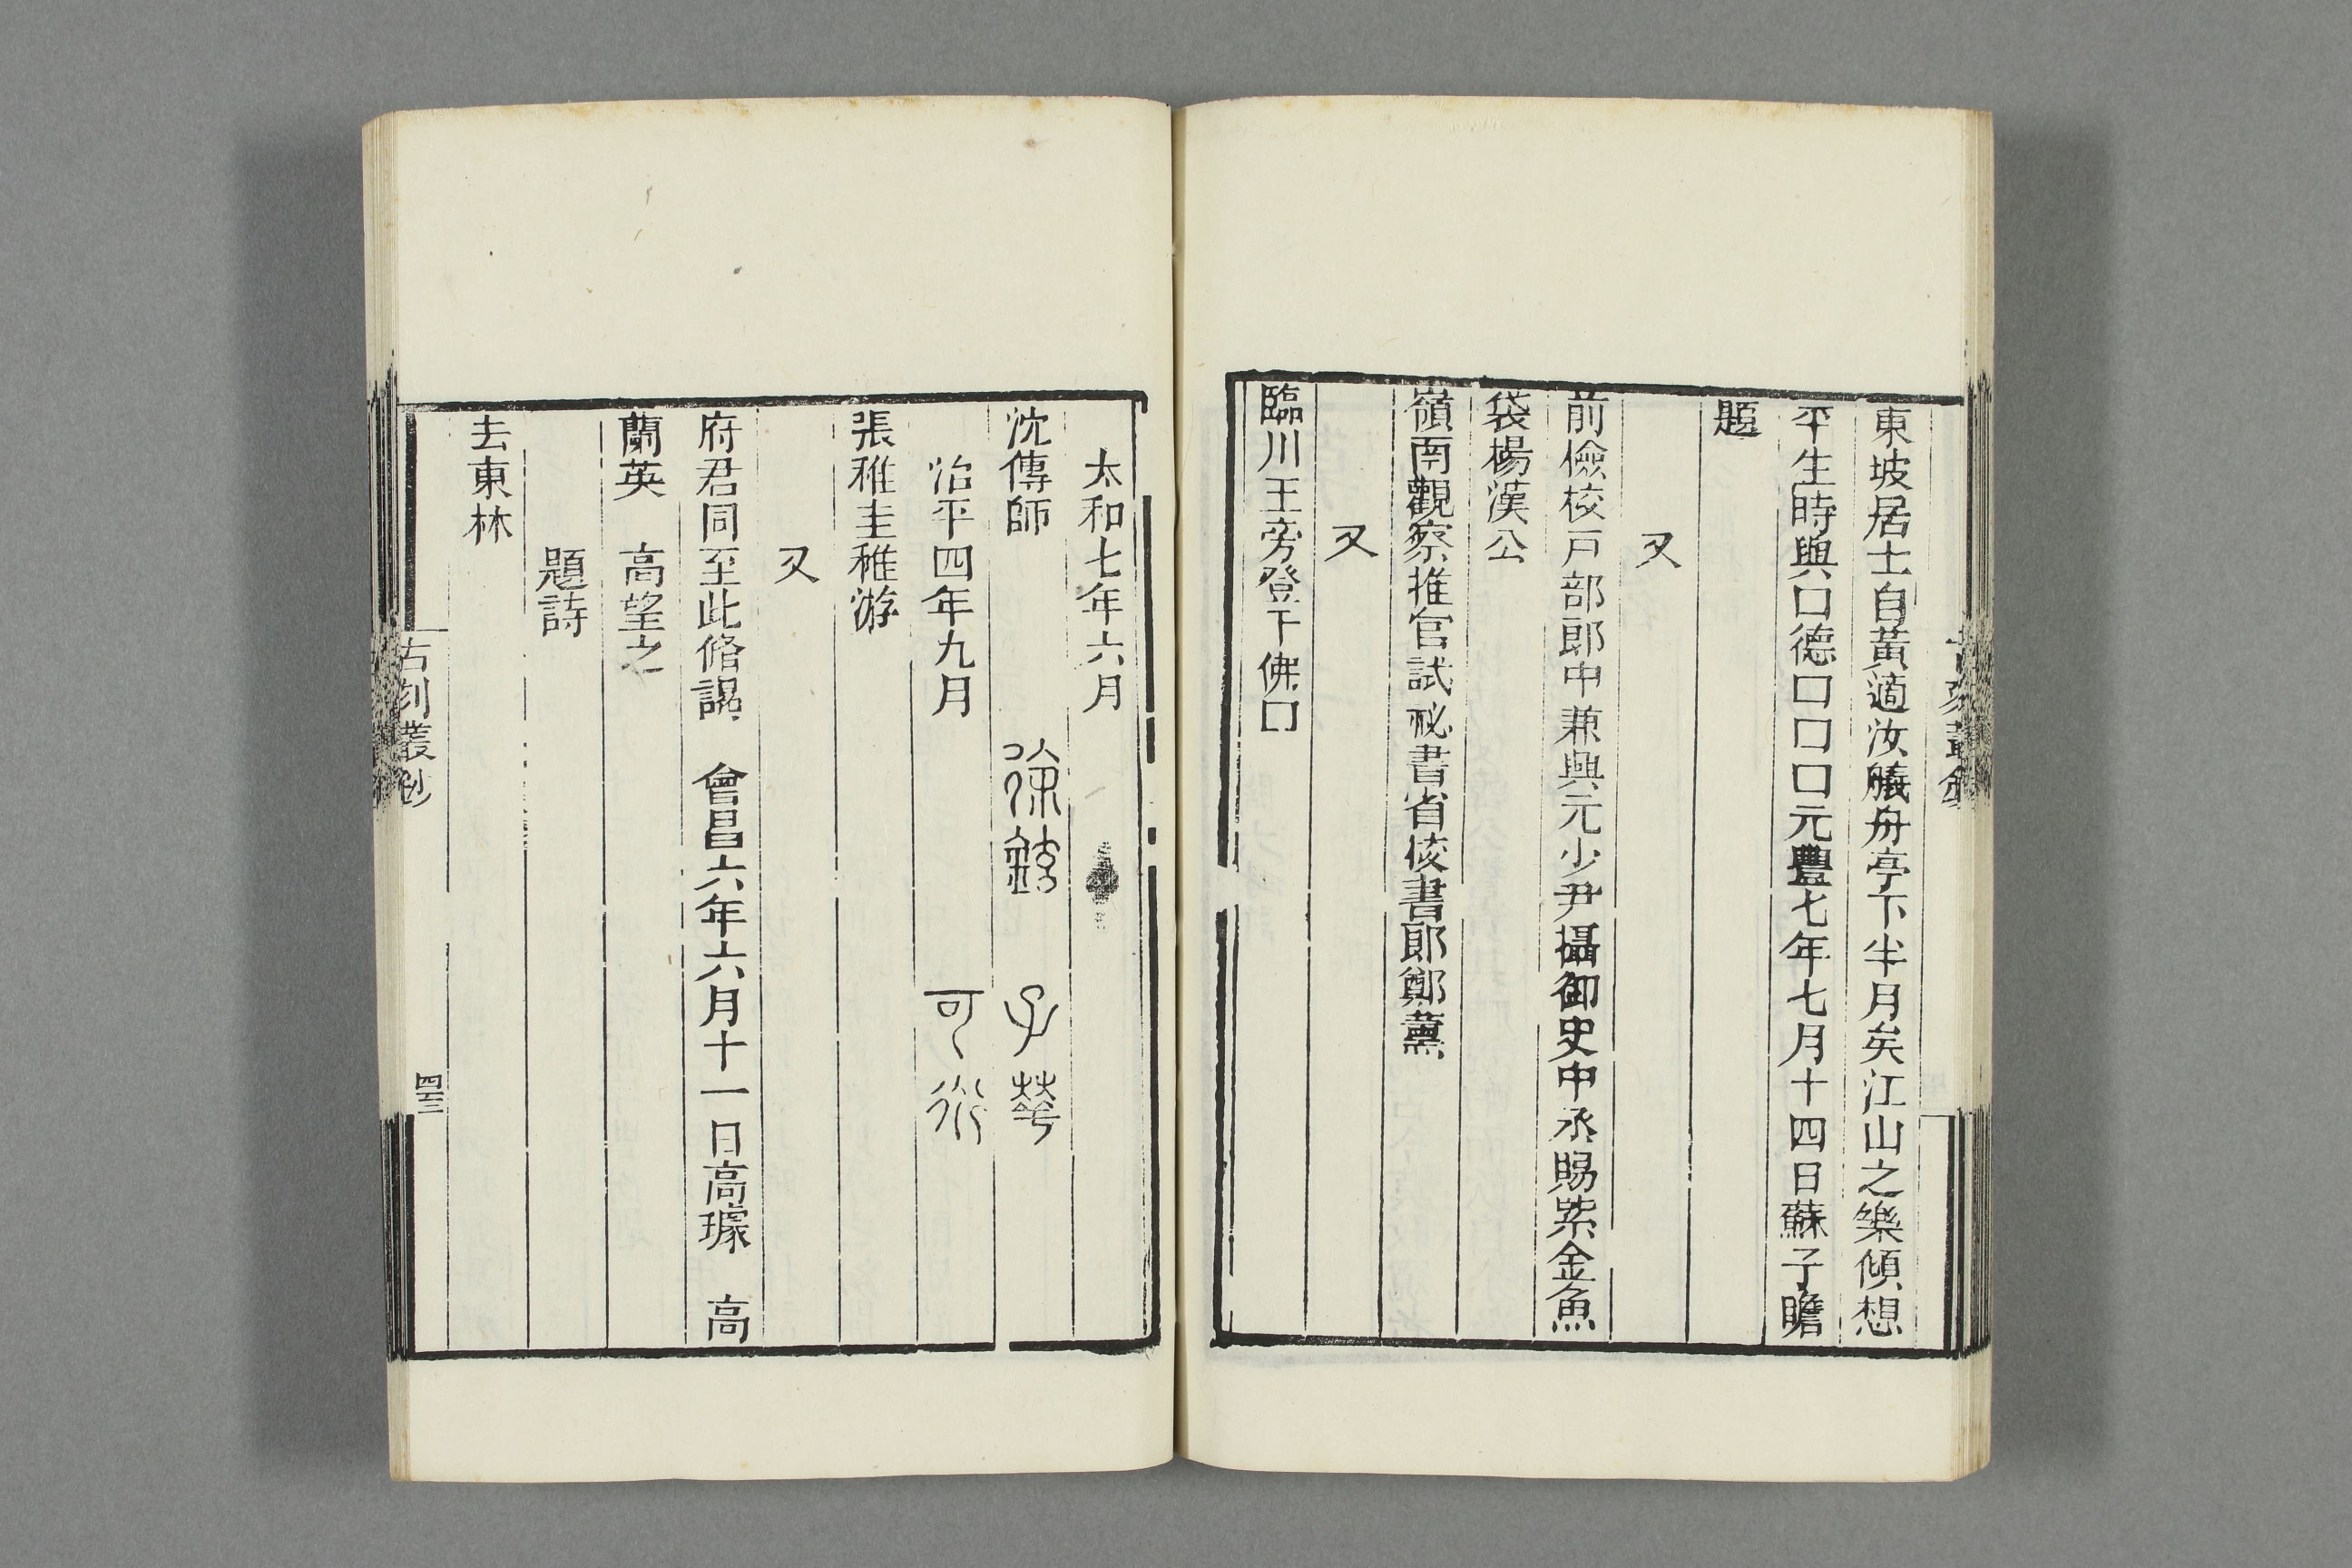 東坡居士自黃適汝艤舟亭下半月矣江山之樂傾想
平生時與口德口口口元豐七年七月十四日蘇子瞻
題
又
前儉校戸部郎中兼興元少尹攝御史中丞賜紫金魚
袋楊漢公
嶺南觀察推官試祕書省校書郎鄭薰
又
臨川王旁登下佛口
太和七年六月
沈傳師 徐鉉 子華
治平四年九月 可道
張稚圭稚游
又
府君同至此脩謁 會昌六年六月十一日高璩 高
蘭英 高望之
題詩
去東林
古刻叢鈔
四三